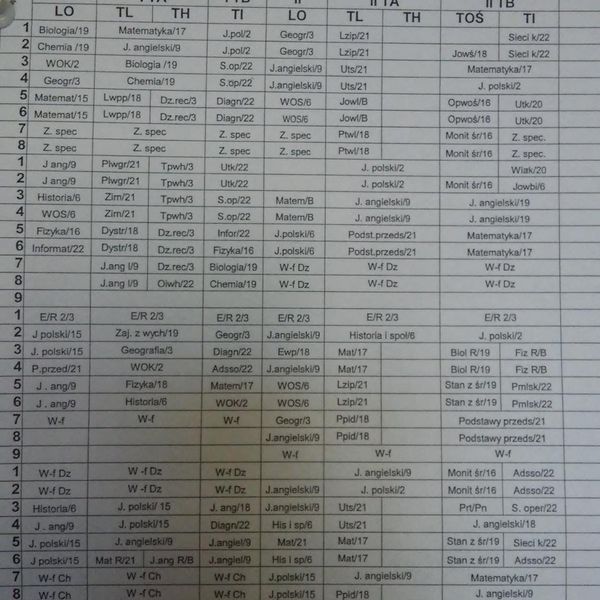 II II TA II TB
LO TL TH TI LO TL TH TOŚ TI
1 Biologia/19 Matematyka/17 J.pol/2 Geogr/3 Lzip/21 Sieci k/22
2 Chemia /19 J. angielski/9 J.pol/2 Geogr/3 Lzip/21 Jowś/18 Sieci k/22
3 WOK/2 Biologia /19 S.op/22 J.angielski/9 Uts/21 Matematyka/17
4 Geogr/3 Chemia/19 S.op/22 J.angielski/9 Uts/21 J. polski/2
5 Matemat/15 Lwpp/18 Dz.rec/3 Diagn/22 WOS/6 Jowl/B Opwoś/16 Utk/20
6 Matemat/15 Lwpp/18 Dz.rec/3 Diagn/22 WOS/6 Jowl/B Opwoś/16 Utk/20
7 Z. spec Z. spec Z. spec Z. spec Ptwl/18 Monit śr/16 Z. spec.
8 Z. spec Z. spec Z. spec Z. spec Ptwl/18 Monit śr/16 Z. spec.
1 J ang/9 Plwgr/21 Tpwh/3 Utk/22 J. polski/2 Wiak/20
2 J ang/9 Plwgr/21 Tpwh/3 Utk/22 J. polski/2 Monit śr/16 Jowbi/6
3 Historia/6 Zim/21 Tpwh/3 S.op/22 Matem/B J. angielski/9 J. angielski/19
4 WOS/6 Zim/21 Tpwh/3 S.op/22 Matem/B J. angielski/9 J. angielski/19
5 Fizyka/16 Dystr/18 Dz.rec/3 Infor/22 J.polski/6 Podst.przeds/21 Matematyka/17
6 Informat/22 Dystr/18 Dz.rec/3 Fizyka/16 J.polski/6 Podst.przeds/21 Matematyka/17
7 J.ang l/9 Dz.rec/3 Biologia/19 W-f Dz W-f Dz W-f Dz
8 J.ang l/9 Oiwh/22 Chemia/19 W-f Dz W-f Dz W-f Dz
9
1 E/R 2/3 E/R 2/3 E/R 2/3 E/R 2/3 E/R 2/3 E/R 2/3
2 J polski/15 Zaj. z wych/19 Geogr/3 J.angielski/9 Historia i społ/6 J. polski/2
3 J. polski/15 Geografia/3 Diagn/22 Ewp/18 Mat/17 Biol R/19 Fiz R/B
4 P.przed/21 WOK/2 Adsso/22 J.angielski/9 Mat/17 Biol R/19 Fiz R/B
5 J . ang/9 Fizyka/18 Matem/17 WOS/6 Lzip/21 Stan z śr/19 Pmlsk/22
6 J . ang/9 Historia/6 WOK/2 WOS/6 Lzip/21 Stan z śr/19 Pmlsk/22
7 W-f W-f W-f Geogr/3 Ppid/18 Podstawy przeds/21
8 J.angielski/9 Ppid/18 Podstawy przeds/21
9 W-f W-f W-f
1 W-f Dz W -f Dz W-f Dz W-f Dz J. angielski/9 Monit śr/16 Adsso/22
2 W-f Dz W -f Dz W-f Dz J.angielski/9 J. polski/2 Monit śr/16 Adsso/22
3 Historia/6 J. polski/ 15 J. ang/18 J.angielski/9 Uts/21 Prt/Pn S. oper/22
4 J . ang/9 J. polski/15 Diagn/22 His i sp/6 Uts/21 J. angielski/18
5 J. polski/15 J. angielski/9 J.angiel/9 Mat/21 Mat/17 Stan z śr/19 Sieci k/22
6 J polski/15 Mat R/21 J.ang R/B J.angiel/9 His i sp/6 Mat/17 Stan z śr/19 Adsso/22
7 W-f Ch W -f Ch W-f Ch J.polski/15 J. angielski/9 Matematyka/17
8 W-f Ch W -f Ch W-f Ch J.polski/15 Ppid/18 J. angielski/9